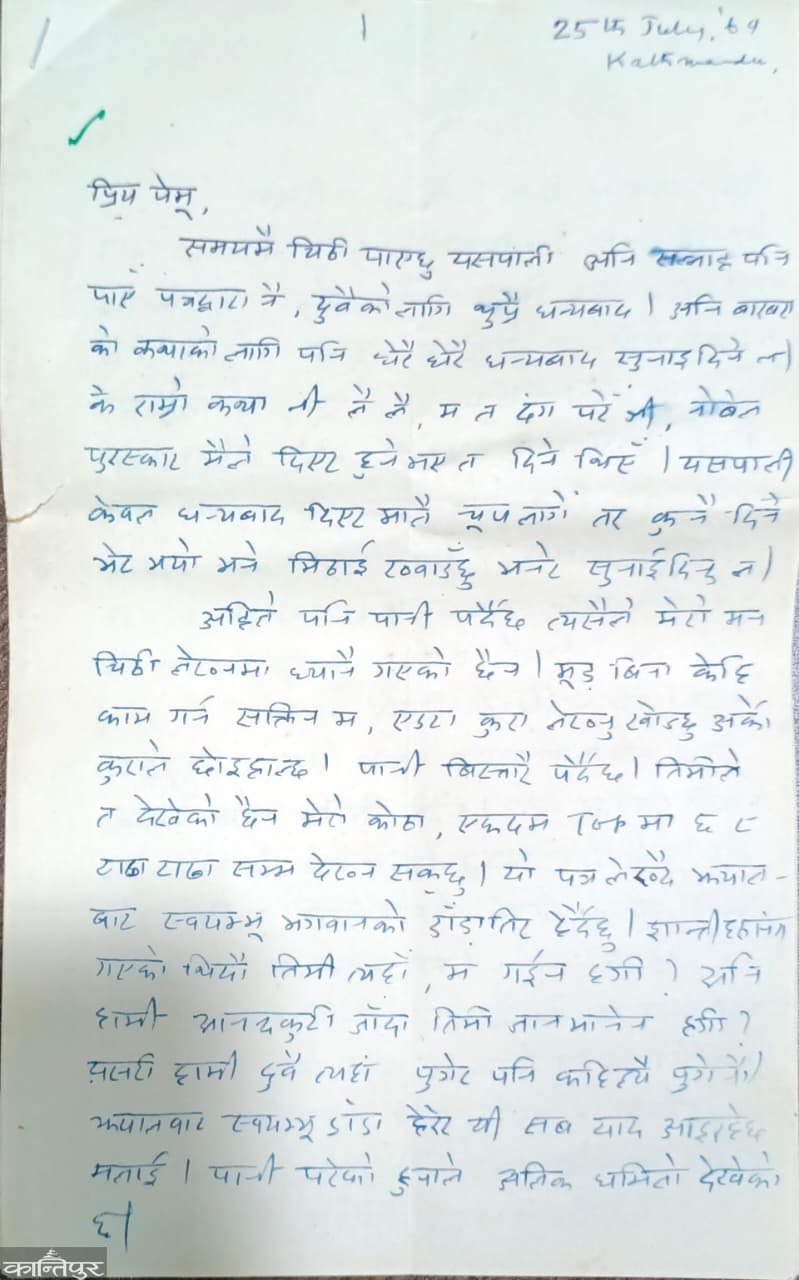 25th July, '69
Kathmandu,
प्रिय पेमू,
समयमै चिठी पाएछु यसपाली अनि सल्लाह पनि
पाएँ पत्रद्वारा नै, दुवैको लागि थुप्रै धन्यबाद । अनि बारबरा
को कथाको लागि पनि धेरै धेरै धन्यबाद सुनाइदिने ल।
के राम्रो कथा नी लै लै, म त दंग परेँ नी, नोबेल
पुरस्कार मैले दिएर हुने भए त दिने थिएँ । यसपाली
केवल धन्यबाद दिएर मात्तै चूप लागेँ तर कुनै दिन
भेट भयो भने मिठाई ख्वाउँछु भनेर सुनाईदिनु ल।
अहिले पनि पानी पर्दैछ त्यसैले मेरो मन
चिठी लेख्नमा ध्यानै गएको छैन । मूड बिना केहि
काम गर्न सक्तिन म, एउटा कुरा लेख्नु खोज्छु अर्को
कुराले छोइहाल्छ । पानी बिस्तारै पर्दैछ । तिमीले
त देखेको छैन मेरो कोठा, एकदम TOP मा छ र
टाढा टाढा सम्म देख्न सक्छु । यो पत्र लेख्दै झ्याल-
बाट स्वयम्भू भगवानको डाँडातिर हेर्दैछु । शान्तीहरूसंग
गएको थियौ तिमी त्यहाँ, म गईन हगी ? अनि
हामी आनन्दकुटी जाँदा तिमी जान मानेन हगी ?
यसरी हामी दुवै त्यहां पुगेर पनि कहिल्यै पुगेनौं।
झ्यालबाट स्वयम्भू डाँडा हेरेर यी सब याद आइरहेछ
मलाई । पानी परेको हुनाले अलिक धमिलो देखेको
छ।
कान्तिपुर